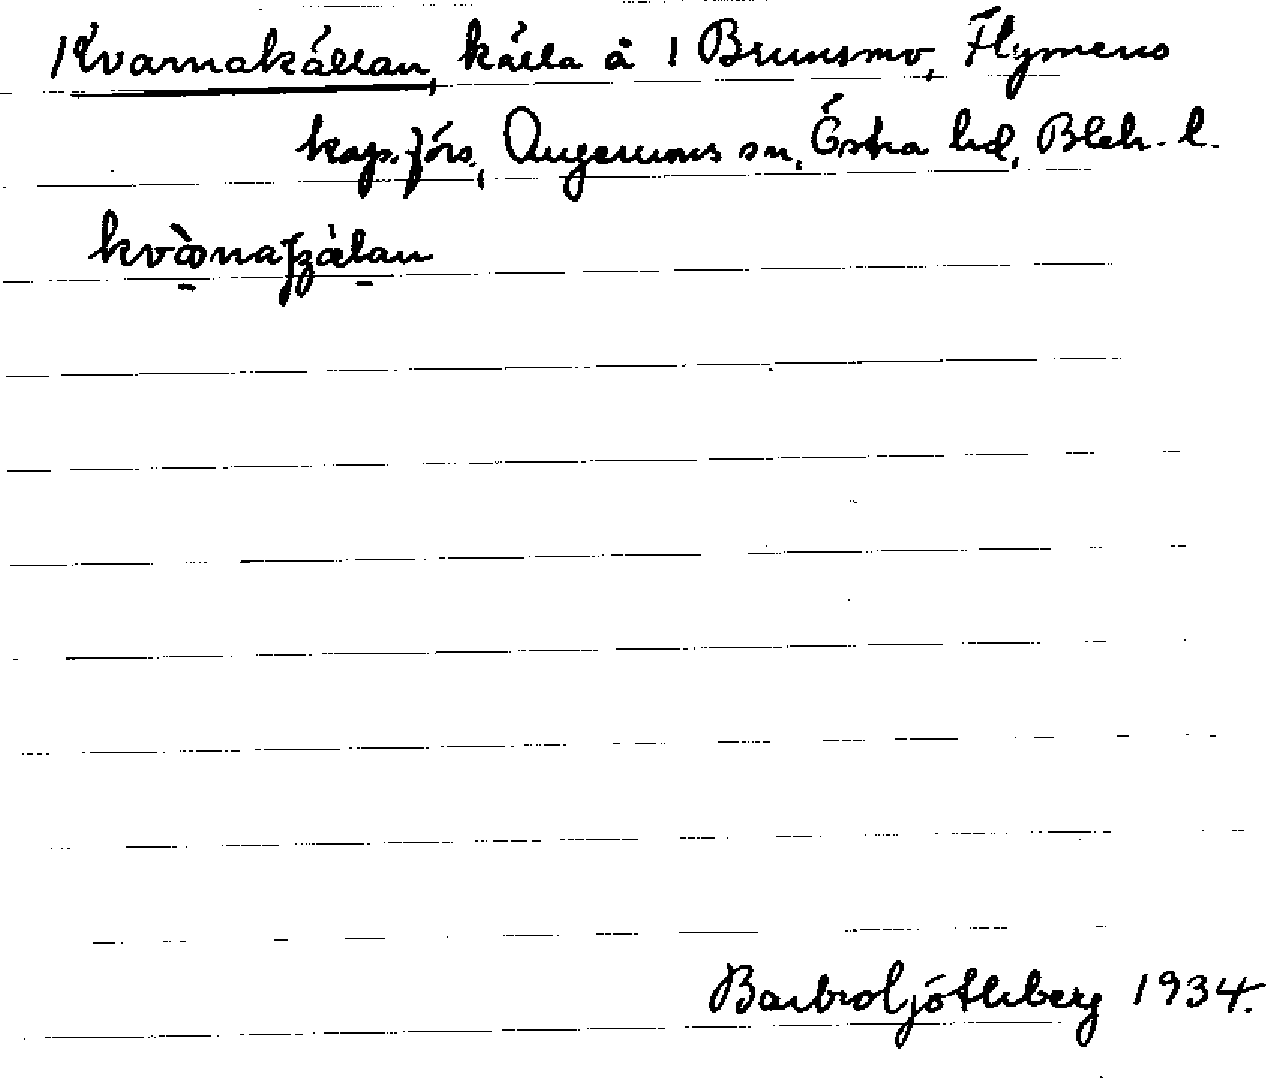 Kvarnakällan, källa å 1 Brunsmo, Flymens
kap.förs., Augerums sn, Östra hd, Blek. l.
1934.